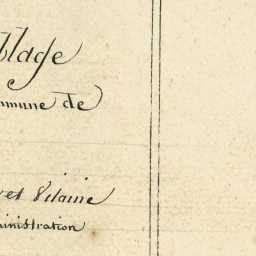 blage
mmune de
et Vilaine
inistration